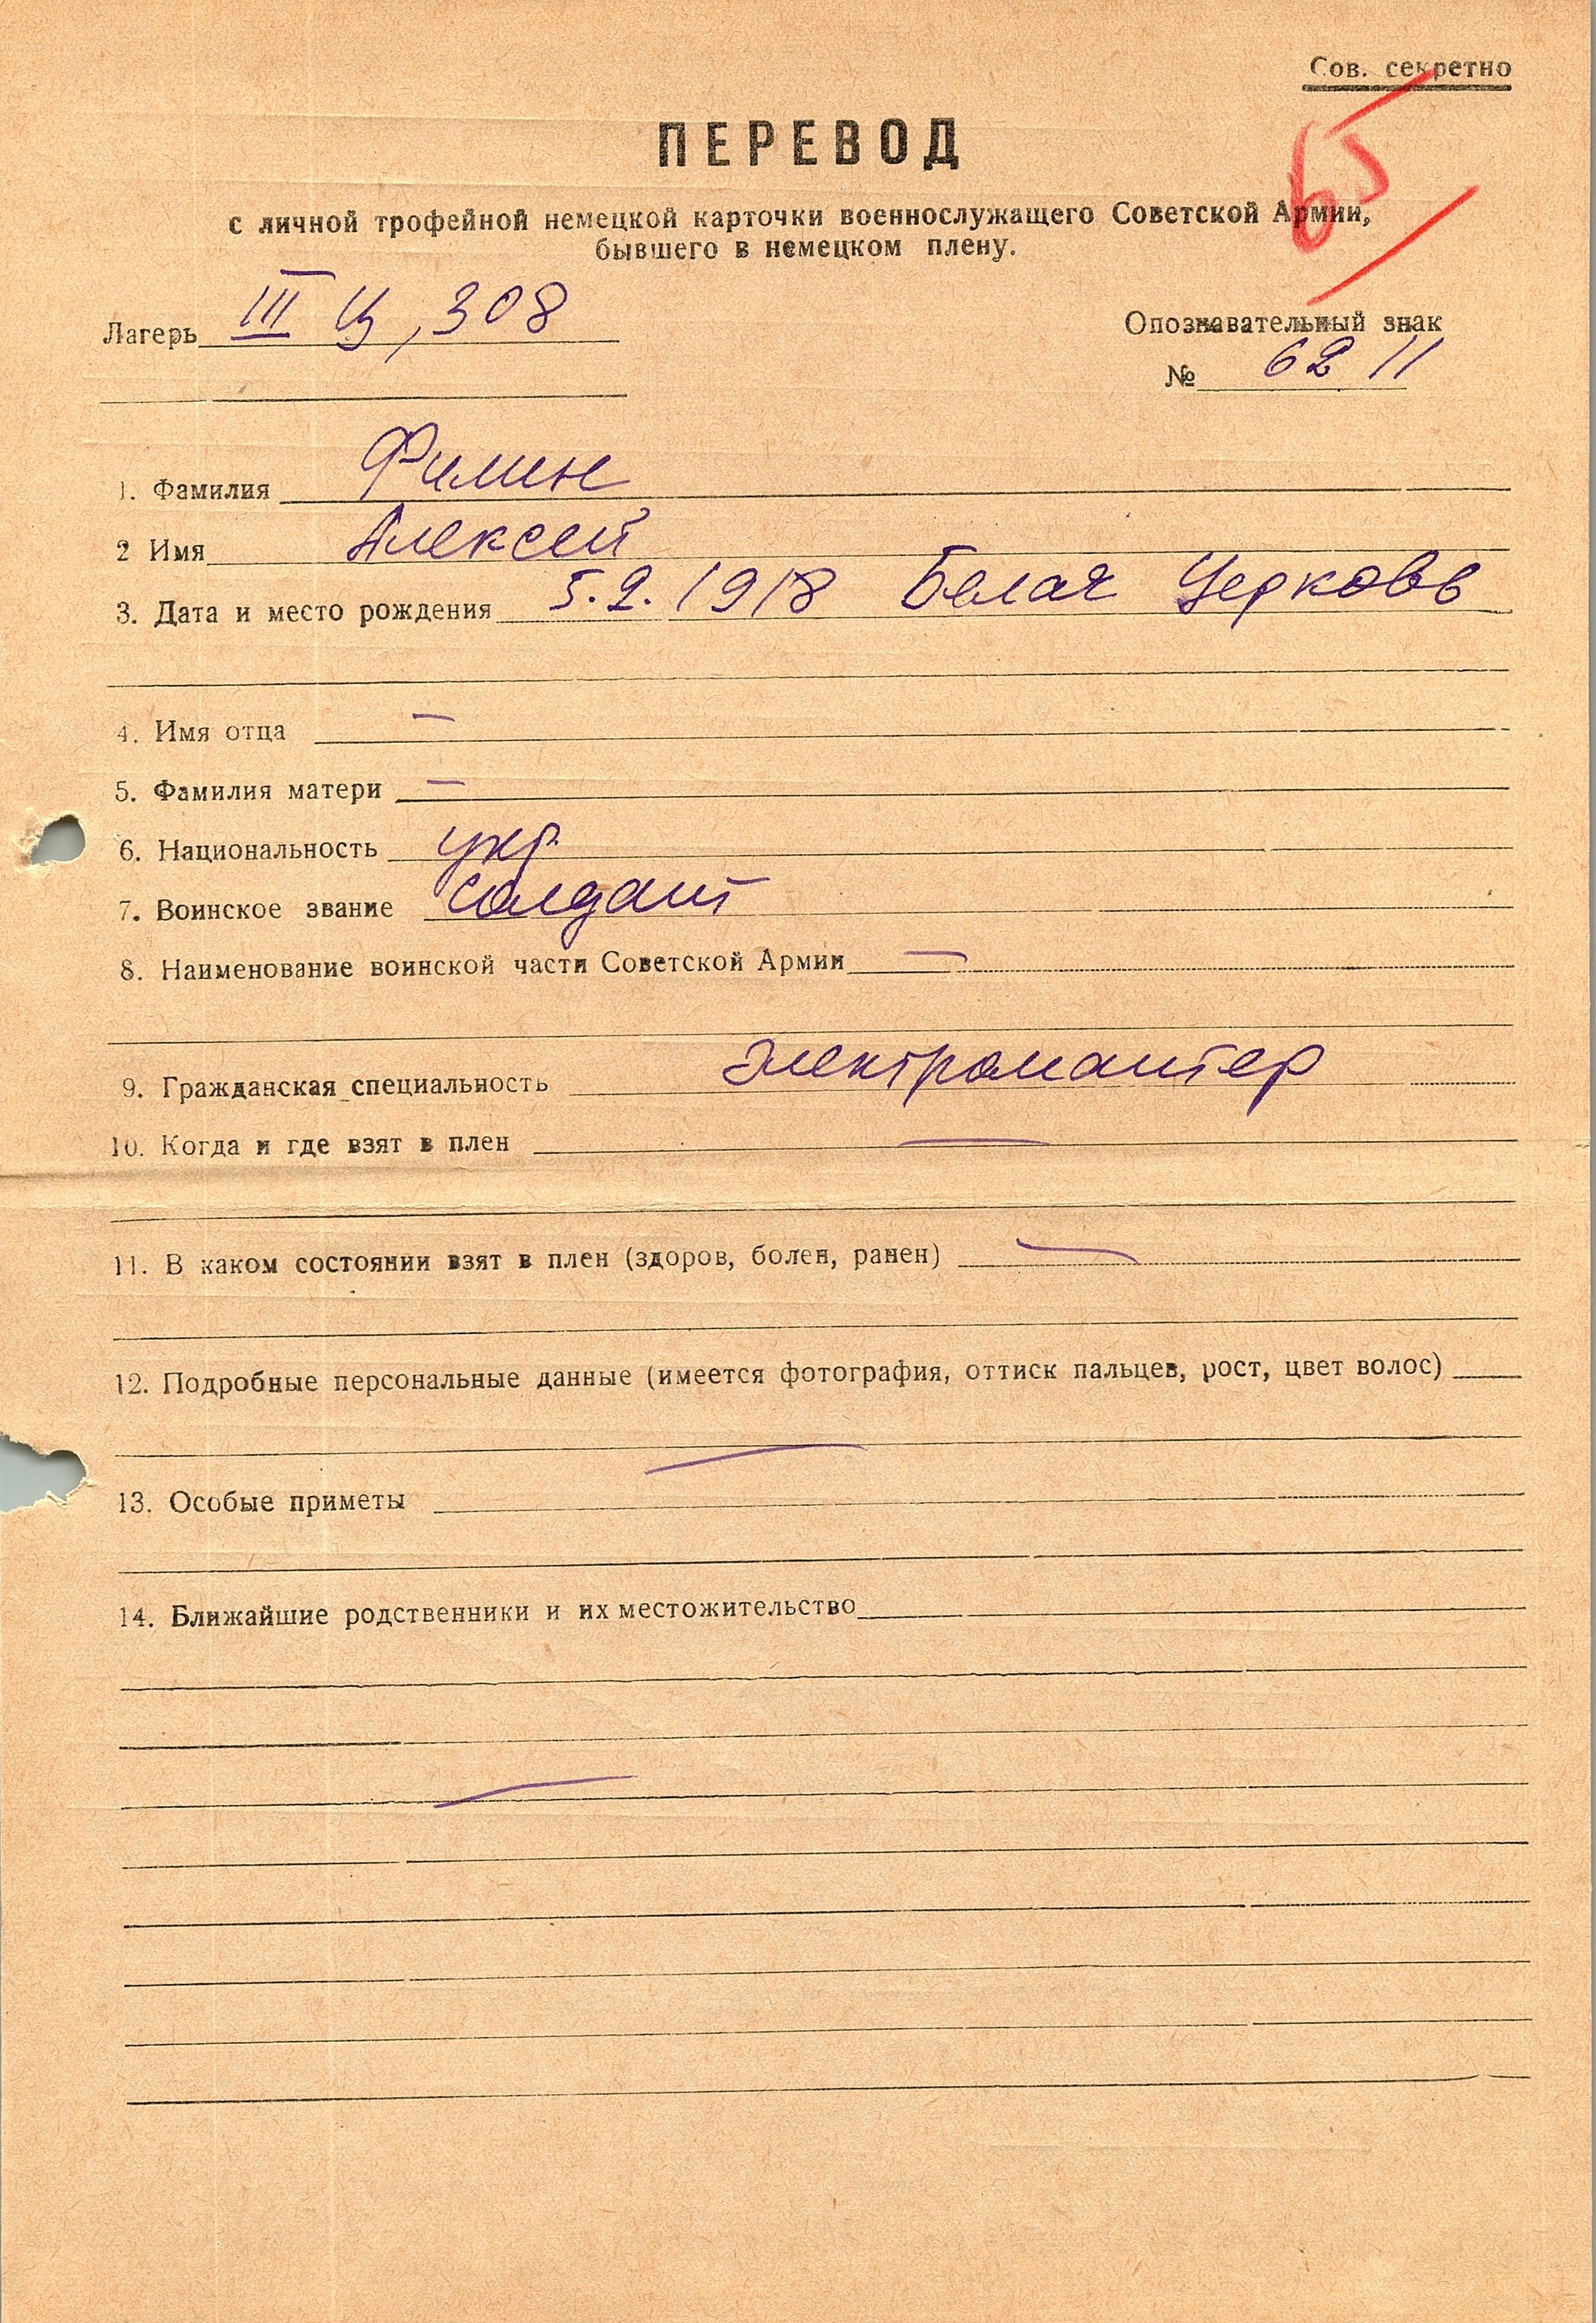 Сов. секретно
65
ПЕРЕВОД
с личной трофейной немецкой карточки военнослужащего Советской Армии,
бывшего в немецком плену.
Лагерь III Ц, 308
Опознавательный знак
№ 6211
1. Фамилия Филин
2 Имя Алексей
3. Дата и место рождения 5.2.1918 Белая Церковь
4. Имя отца —
5. Фамилия матери —
6. Национальность укр.
7. Воинское звание солдат
8. Наименование воинской части Советской Армии —
9. Гражданская специальность электромантер
10. Когда и где взят в плен —
11. В каком состоянии взят в плен (здоров, болен, ранен) —
12. Подробные персональные данные (имеется фотография, оттиск пальцев, рост, цвет волос)
—
13. Особые приметы
14. Ближайшие родственники и их местожительство
—